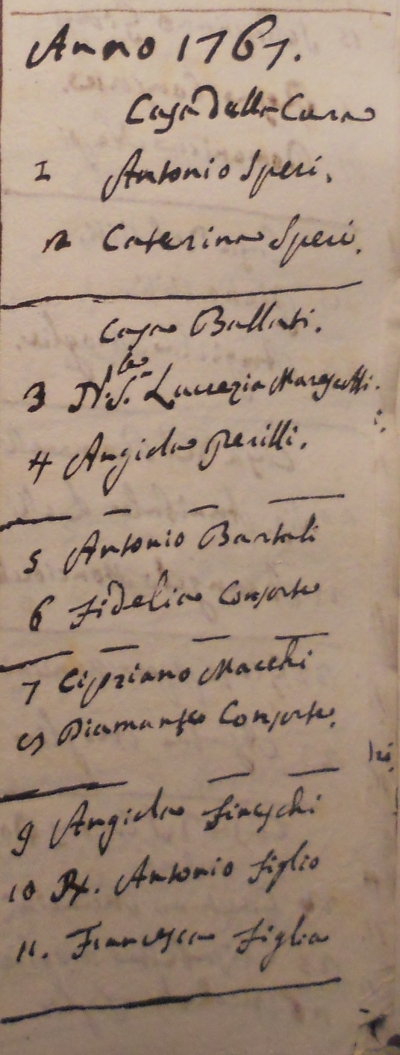 Anno 1767.
Casa della Cura
1 Antonio Speri.
2 Caterina Speri.
Casa Ballati.
3 N. S. la Lucrezia Marescotti.
4 Angiola Perilli.
5 Antonio Bartali
6 Fidelia Consorte
7 Cipriano Macchi
8 Diamante Consorte.
9 Angiola Fineschi
10 Antonio figlio
11. Francesca figlia